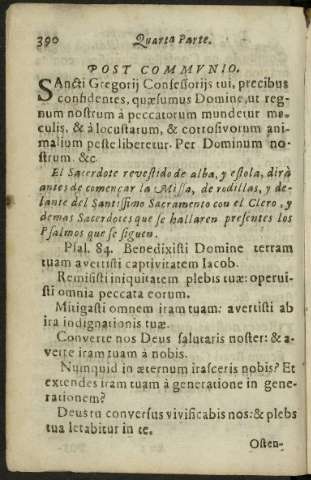 390 Quarta Parte.
POST COMMVNIO.
SAncti Gregorij Confessorijs tui, precibus
confidentes, quæsumus Domine, ut reg-
num nostrum à peccatorum mundetur ma-
culis, & à locustarum, & corrosivorum ani-
malium peste liberetur. Per Dominum no-
strum. &c.
El Sacerdote revestido de alba, y estola, dirà
antes de començar la Missa, de rodillas, y de-
lante del Santissimo Sacramento con el Clero, y
demas Sacerdotes que se hallaren presentes los
Psalmos que se siguen.
Psal. 84. Benedixisti Domine terram
tuam avertisti captivitatem Iacob.
Remisisti iniquitatem plebis tuæ: operui-
sti omnia peccata eorum.
Mitigasti omnem iram tuam: avertisti ab
ira indignationis tuæ.
Converte nos Deus salutaris noster: & a-
verte iram tuam à nobis.
Numquid in æternum irasceris nobis? Et
extendes iram tuam à generatione in gene-
rationem?
Deus tu conversus vivificabis nos: & plebs
tua letabitur in te.
Osten-